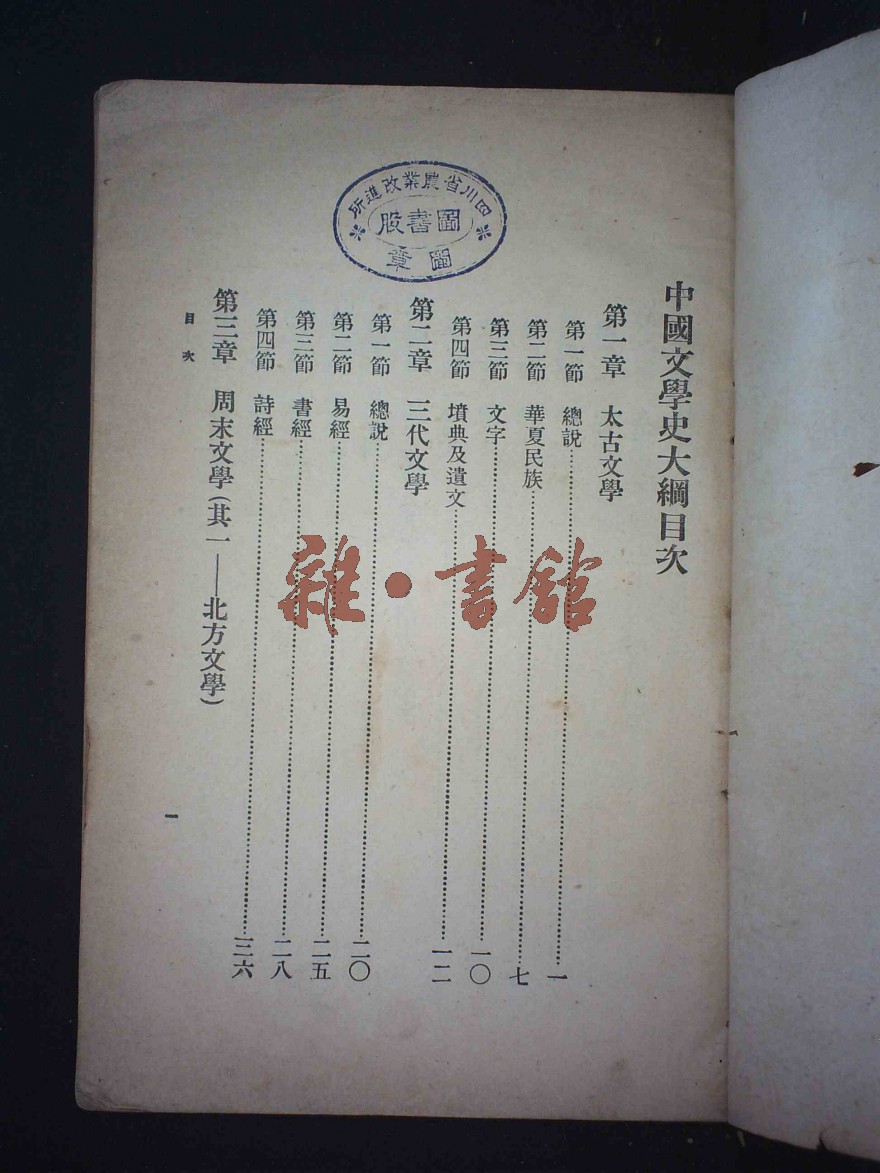 中國文學史大綱目次
第一章　太古文學
第一節　總說…………一
第二節　華夏民族…………七
第三節　文字…………一〇
第四節　墳典及遺文…………一二
第二章　三代文學
第一節　總說…………二〇
第二節　易經…………二五
第三節　書經…………二八
第四節　詩經…………三六
第三章　周末文學(其一——北方文學)
目次
一
四川省農業改進所
圖書股
圖章
雜·書館